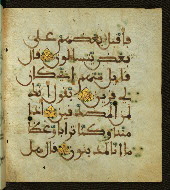 فاقبل بعضهم على
بعض يتساءلون قال
قائل منهم اني كان
لي قرين يقول أئنك
لمن المصدقين أئذا
متنا وكنا ترابا وعظا
ما انا لمدينون قال هل